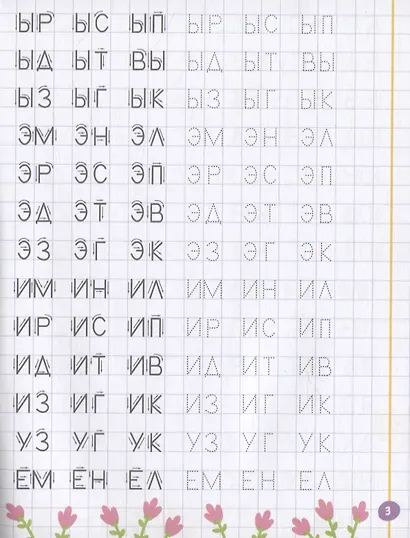 ЫР ЫС ЫП ЫР ЫС ЫП
ЫД ЫТ ВЫ ЫД ЫТ ВЫ
ЫЗ ЫГ ЫК ЫЗ ЫГ ЫК
ЭМ ЭН ЭЛ ЭМ ЭН ЭЛ
ЭР ЭС ЭП ЭР ЭС ЭП
ЭД ЭТ ЭВ ЭД ЭТ ЭВ
ЭЗ ЭГ ЭК ЭЗ ЭГ ЭК
ИМ ИН ИЛ ИМ ИН ИЛ
ИР ИС ИП ИР ИС ИП
ИД ИТ ИВ ИД ИТ ИВ
ИЗ ИГ ИК ИЗ ИГ ИК
УЗ УГ УК УЗ УГ УК
ЕМ ЕН ЕЛ ЕМ ЕН ЕЛ
3